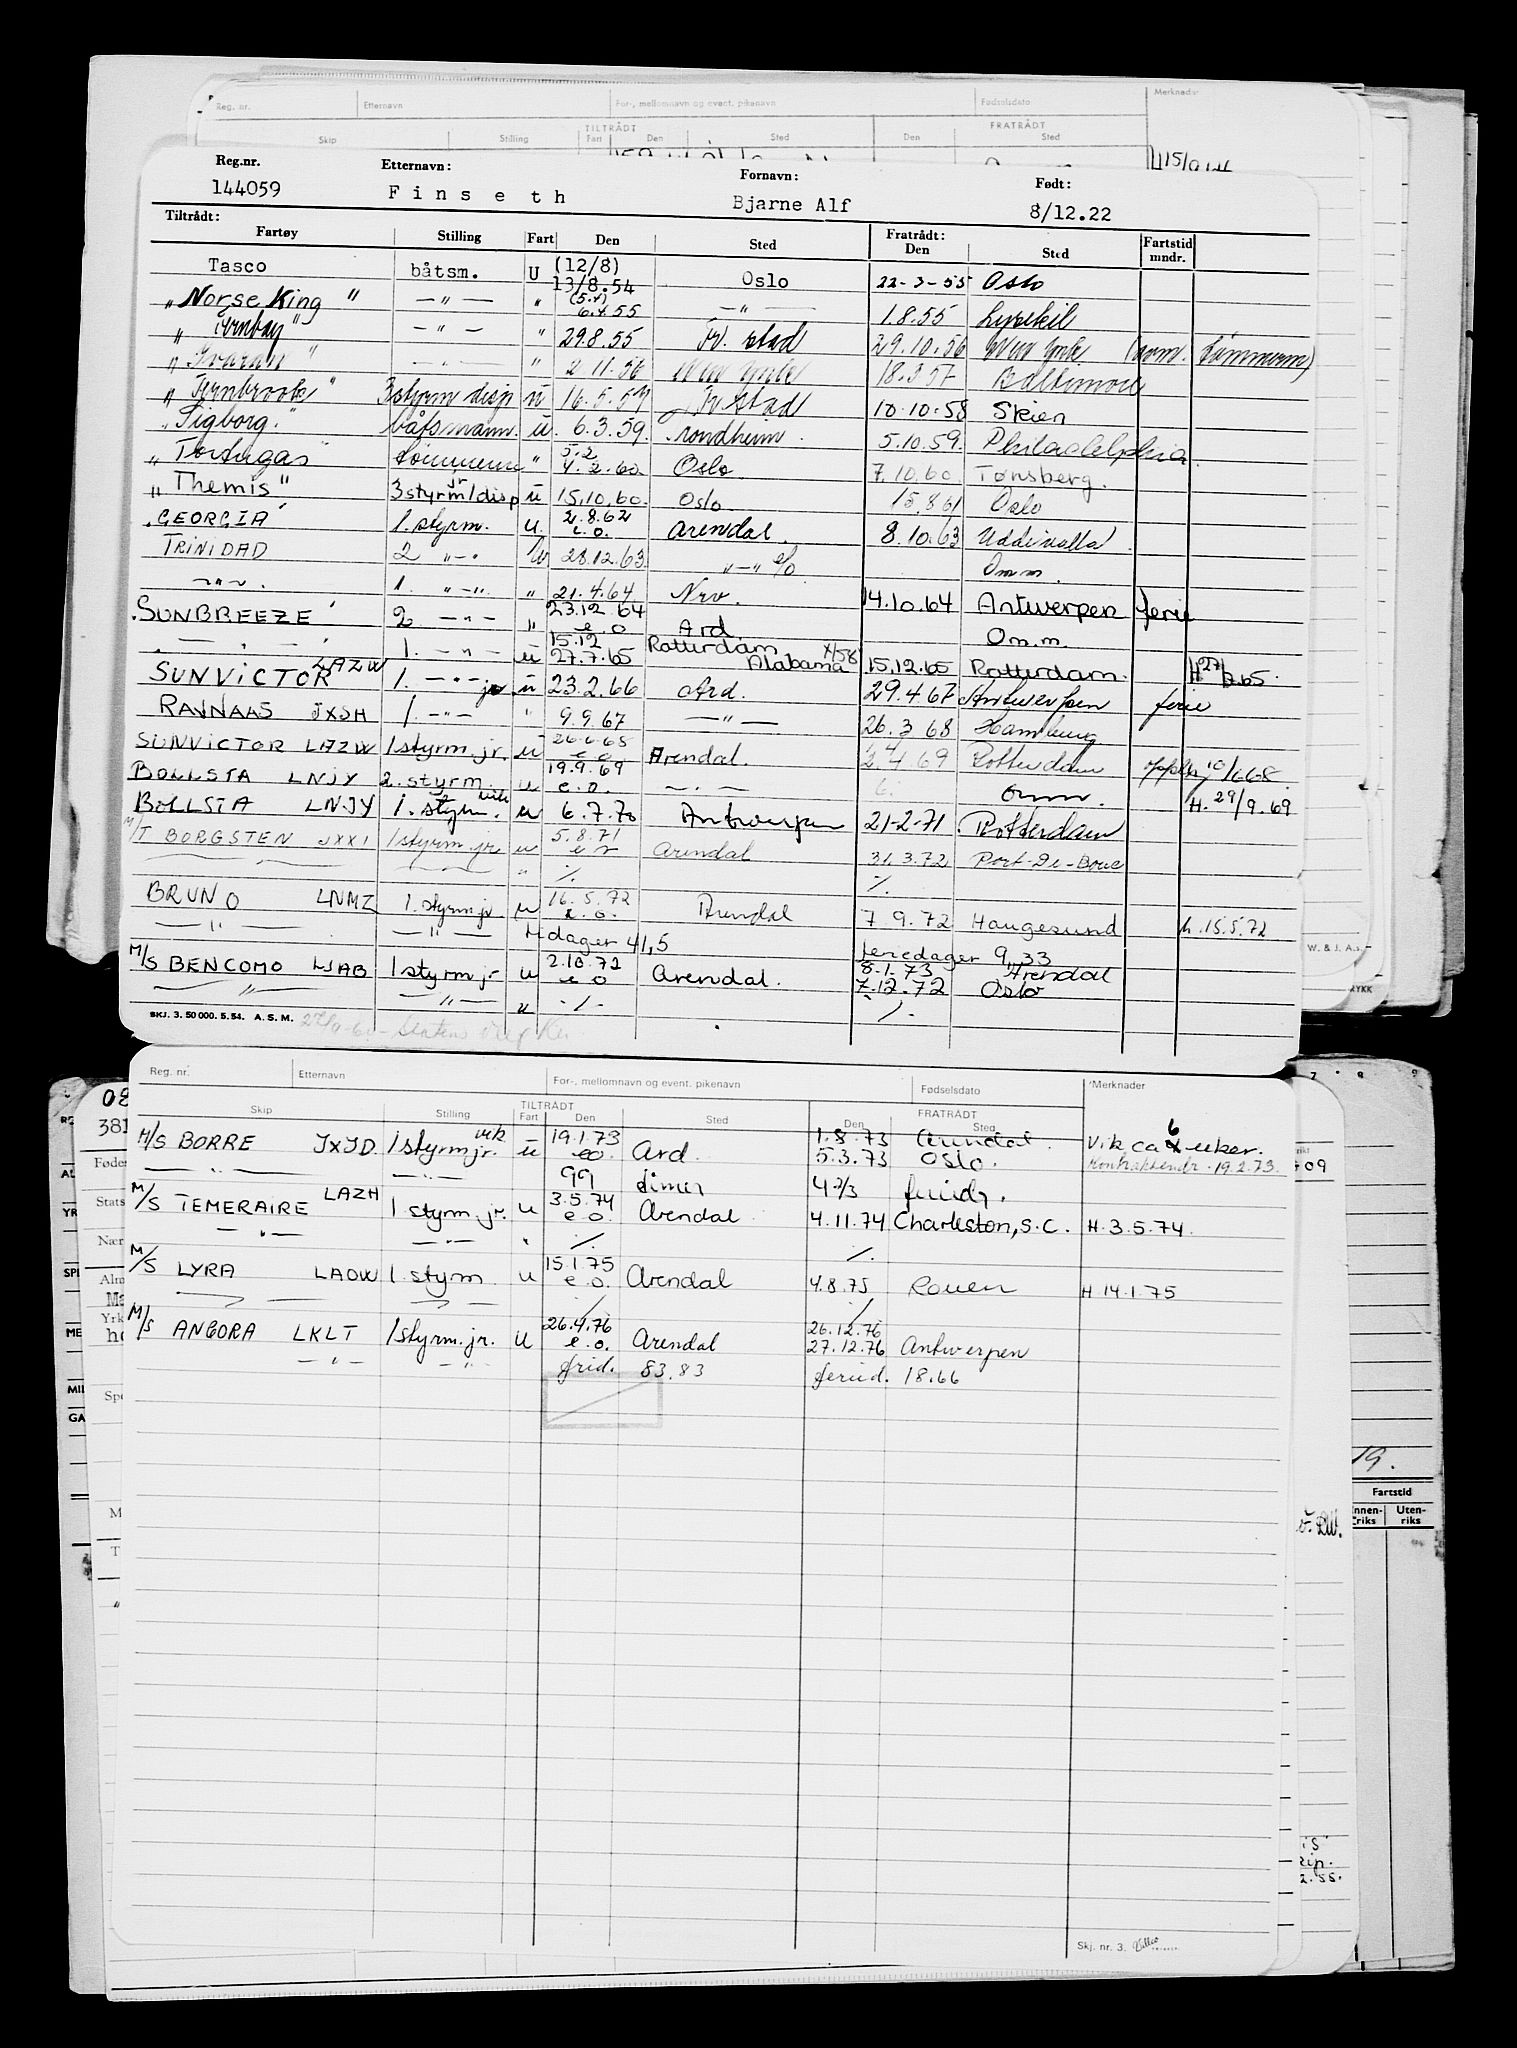 Reg. nr. Etternavn For-, mellomnavn og event. pikenavn Fødselsdato Merknader
TILTRÅDT FRATRÅDT
Skip Stilling Fart Den Sted Den Sted
Reg.nr. Etternavn: Fornavn: Født:
144059 Finseth Bjarne Alf 8/12.22
Tiltrådt: Fratrådt:
Fartøy Stilling Fart Den Sted Den Sted Fartstid mndr.
Tasco båtsm. U (12/8) 13/8.54 Oslo 22-3-55 Oslo
"Norse King" —"— " (5.4) 6.4.55 —"— 1.8.55 Lysekil
" Fernbay" —"— " 29.8.55 Fr. stad 29.10.56 New York (avm. tømmerm)
" " " 2.11.56 New York 18.3.57 Baltimore
" Fernbrook" 3styrm disp u 16.5.57 Fr stad 10.10.58 Skien
"Sigborg." båtsmann. u. 6.3.59. Trondheim. 5.10.59. Philadelphia.
" Tortugas " 5.2 4.2.60 Oslo. 7.10.60 Tønsberg.
" Themis" 3styrm jr/disp u 15.10.60. Oslo 15.8.61 Oslo
"GEORGIA" 1. styrm. u. 2.8.62 e.o. Arendal. 8.10.63 Uddevalla.
TRINIDAD 2 "—" 28.12.63 "—" e/o Omm.
—"—. 1. "—" " 21.4.64 Nrv. 14.10.64 Antwerpen ferie
SUNBREEZE 2 —"— " 23.12.64 e.o Ard. Om.m.
—"— 1. —"— u 15.12 27.7.65 Rotterdam Alabama x/58 15.12.65 Rotterdam. H 27/7.65.
SUNVICTOR LAZW 1. —"— jr u 23.2.66 Ard. 29.4.67 Antwerpen ferie
RAVNAAS JXSH 1. —"— " 9.9.67 —"— 26.3.68 Hamburg
SUNVICTOR LAZW 1styrm.jr. u e o Arendal. 2.4.69 Rotterdam
BOLLSTA LNJY 2.styrm u 19.9.69 e.o. —.— 6. omm. H.29/9.69
BOLLSTA LNJY 1. styrm. vik u 6.7.70 Antwerpen 21-2.71 Rotterdam
M/T BORGSTEN JXXI 1styrm jr u 5.8.71 e o Arendal 31.3.72 Port-De-Bouc
" ./. ./.
BRUNO LNMZ 1.styrm jr u 16.5.72 e.o. Arendal 7.9.72 Haugesund h.15.5.72
—"— —"— fridager 41,5 feriedager 9,33
M/S BENCOMO LJAB 1styrm jr u 2.10.72 e o Arendal. 8.1.73 7.12.72 Arendal Oslo
—"— —"— u -/- -/-
SKJ. 3. 50 000. 5. 54. A. S. M.
W. & J. A.s.
RYKK
Reg. nr. Etternavn For-, mellomnavn og event. pikenavn Fødselsdato Merknader
TILTRÅDT FRATRÅDT
Skip Stilling Fart Den Sted Den Sted
M/S BORRE JXJD. 1styrm jr. vik u 19.1.73 eo. Ard. 1.8.73 5.3.73 Arendal. Oslo. Vik ca 6 uker. Kontraktendr. 19.2.73.
—"— —"— 99 timer 4 2/3 feriedg.
M/S TEMERAIRE LAZH 1 styrm.jr. u 3.5.74 e.o. Arendal 4.11.74 Charleston, S.C. H.3.5.74.
—"— —"— " ./. ./.
M/S LYRA LAOW 1. styrm u 15.1.75 e.o. Arendal 4.8.75 Rouen H 14.1.75
./. ./.
M/S ANGORA LKLT 1styrm.jr. u 26.4.76 e.o. Arendal 26.12.76 27.12.76 Antwerpen
—"— —"— frid. 83.83 feried. 18.66
Skj. nr. 3.
19.
Fartstid
Innenriks Utenriks